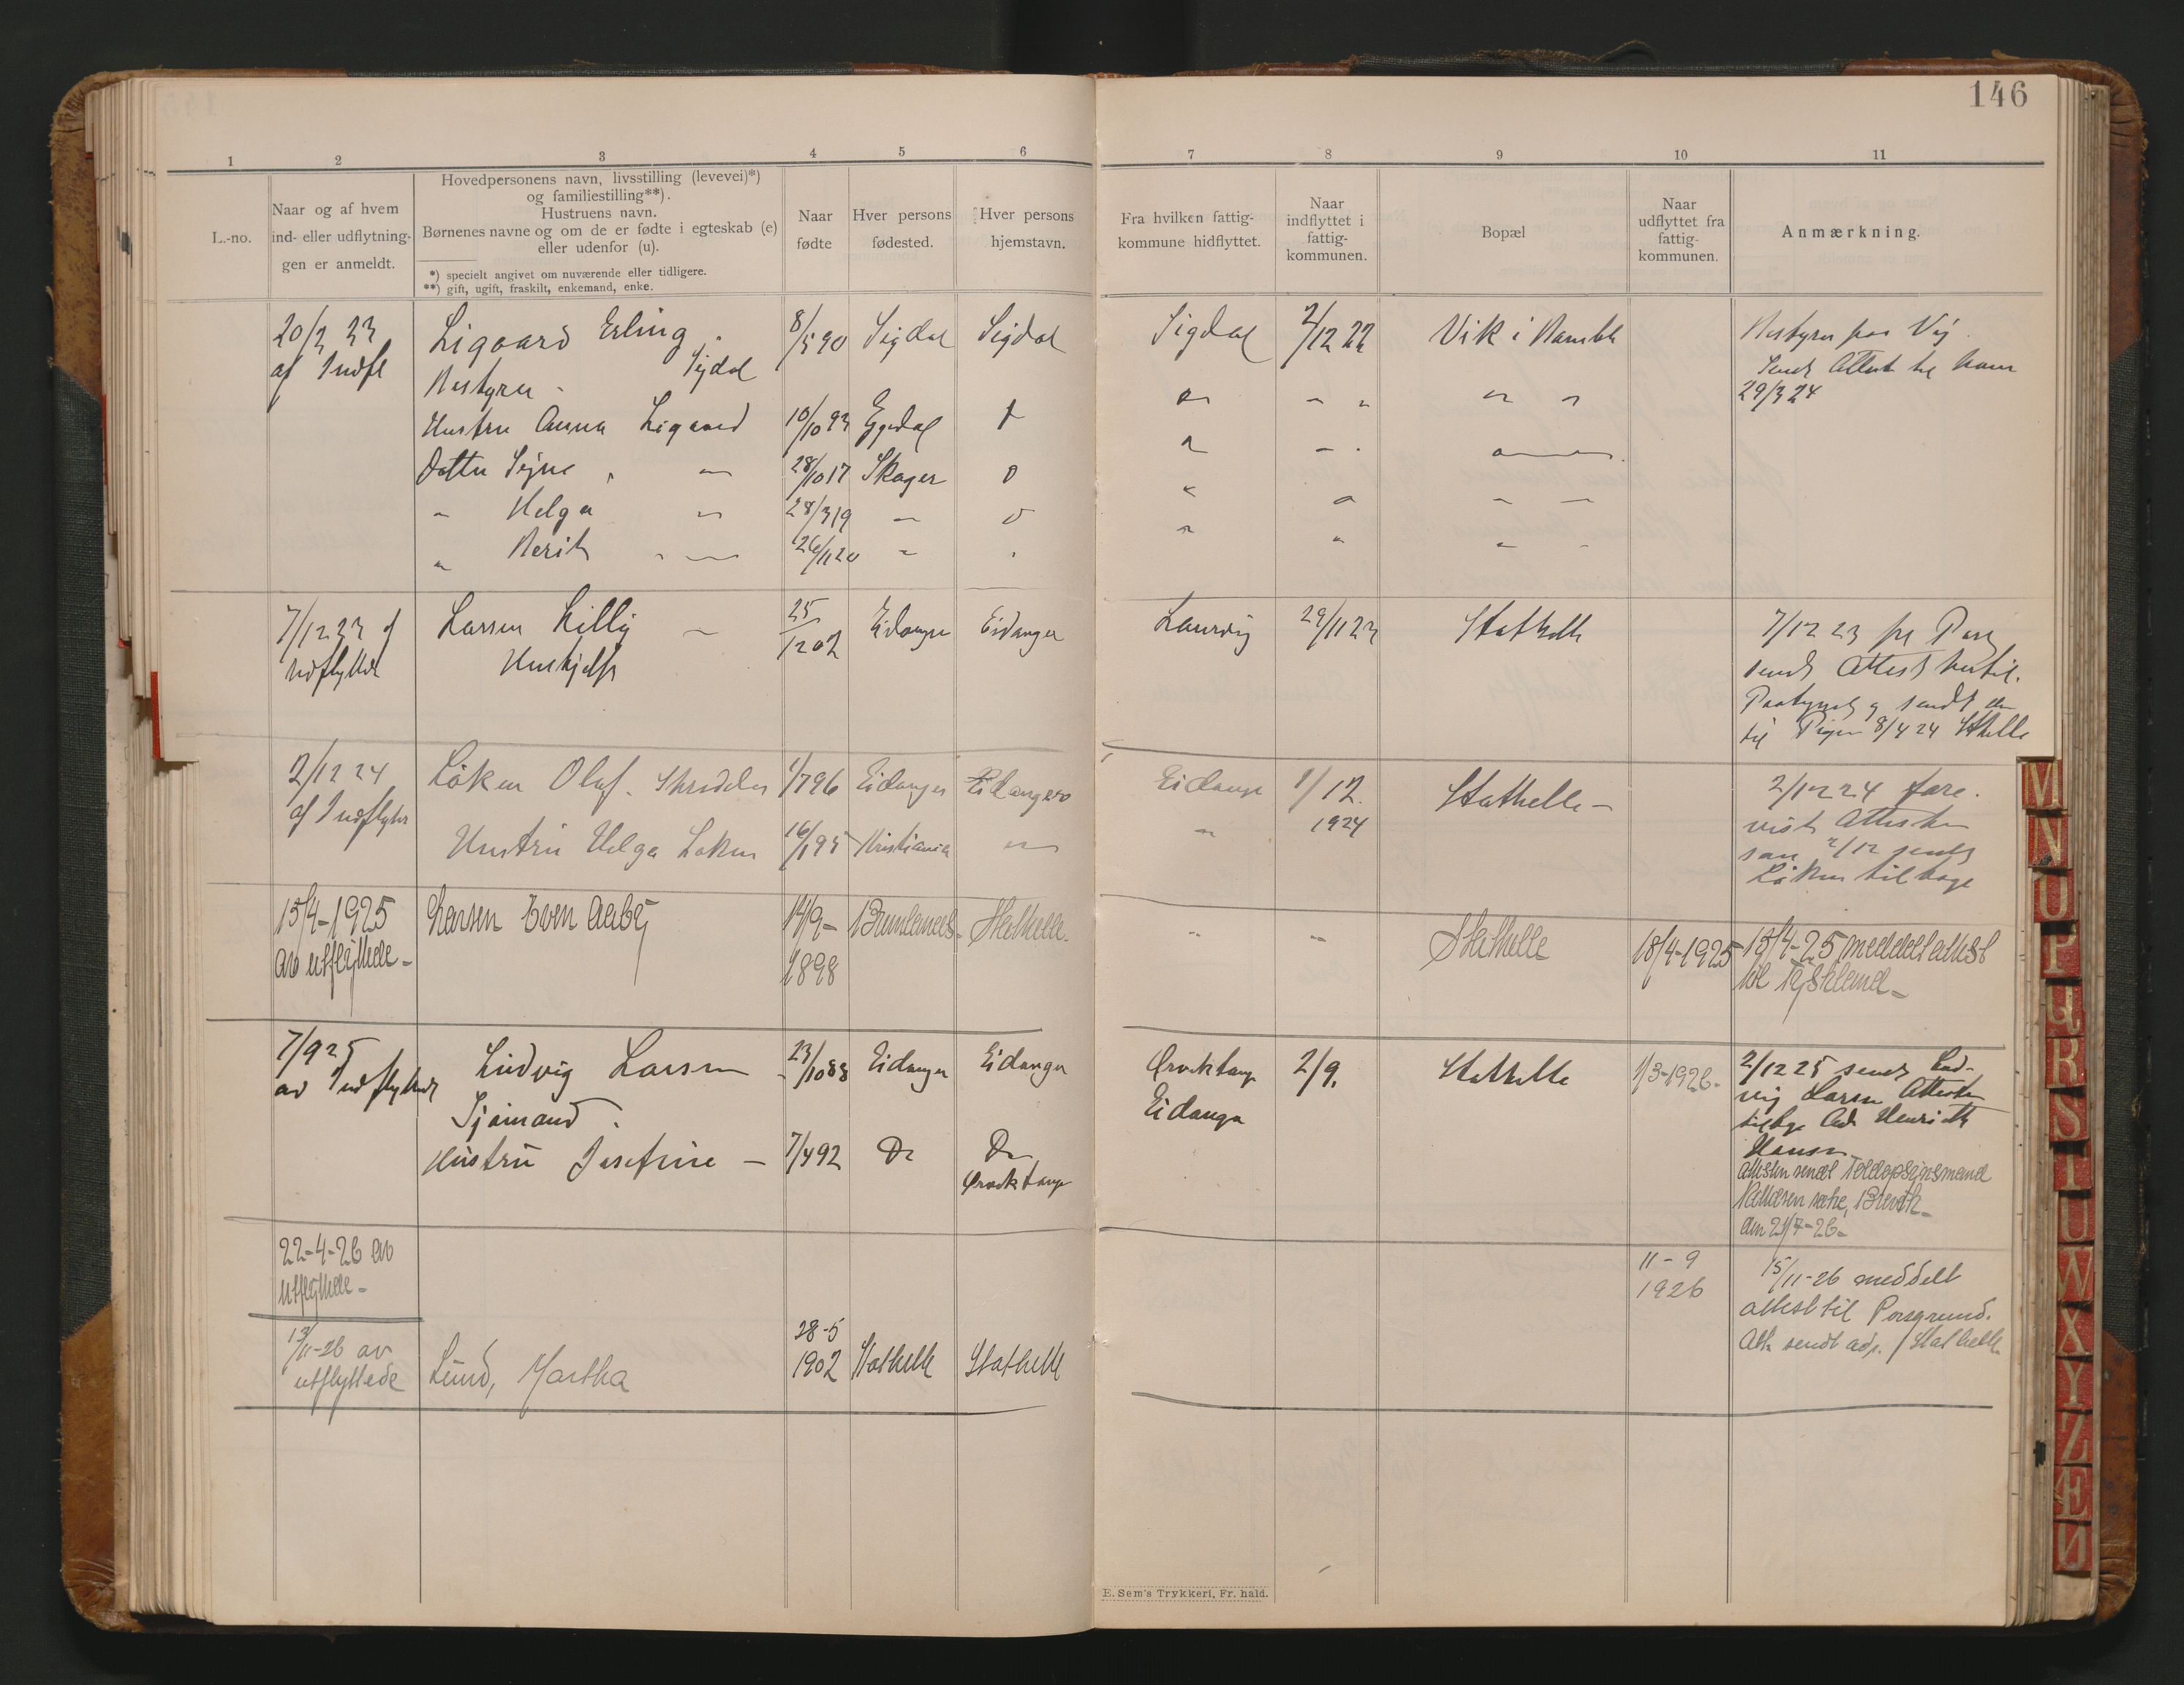 146
1 2 3 4 5 6 7 8 9 10 11
L.-no.
Naar og af hvem
ind- eller udflytnin-
gen er anmeldt.
Hovedpersonens navn, livsstilling (levevei)*)
og familiestilling**).
Hustruens navn.
Børnenes navne og om de er fødte i egteskab (e)
eller udenfor (u).
*) specielt angivet om nuværende eller tidligere.
**) gift, ugift, fraskilt, enkemand, enke.
Naar
fødte
Hver persons
fødested.
Hver persons
hjemstavn.
Fra hvilken fattig-
kommune hidflyttet.
Naar
indflyttet i
fattig-
kommunen.
Bopæl
Naar
udflyttet fra
fattig-
kommunen.
Anmærkning.
20/3 23 Ligaard Erling 8/5 90 Sigdal Sigdal Sigdal 2/12 22 Vik i Bamble
af Indfl Bestyrer Sigdal
Sendt Attest til ham
29/3 24
Hustru Anna Ligaard 10/10 93 Eggedal
Datter Signe 28/10 17 Skoger
" Helga 28/3 19
" Berit 26/11 20
7/12 23 af Larsen Lilly 25/12 02 Eidanger Eidanger Laurvig 29/11 23 Stathelle 7/12 23
Indflyttede Hushjelp
sendt Attest hertil.
og sendt den
til Pigen 8/4 24 Stathelle
2/12 24 Løken Olaf 1/7 96 Eidanger Eidanger Eidanger 1/12 Stathelle 2/12 24 fore-
af Indflytter 1924
vist Attesten
som 2/12 sendt
Løken tilbage
Hustru Helga Løken 16/1 95 Kristiania
15/4-1925 Larsen Even Aaby 14/9- Brunlanes Stathelle Stathelle 18/4-1925 15/4-25 meddelt attest
av utflyttede 1898 til Tyskland
7/9 25 Ludvig Larsen 23/10 88 Eidanger Eidanger Ørviktangen 2/9. Stathelle 1/3-1926 2/12 25 sendt Lud-
av Indflyttede Sjømand Eidanger
vig Larsen Attesten
tilbage Adr Henrik
Hansen
Hustru Josefine 7/4 92 Do Do
Ørviktangen
attesten sendt Toldopsynsmand
Brevik
den 21/7-26
22-4-26 av
utflyttede
13/11-26 av Lund, Martha 28-5 Stathelle Stathelle 11-9 15/11-26 meddelt
utflyttede 1902 1926 attest til Porsgrund.
Att. sendt adr. Stathelle
E. Sem's Trykkeri, Fr. hald.
M
N
O
P
Q
R
S
T
U
W
X
Y
Z
Æ